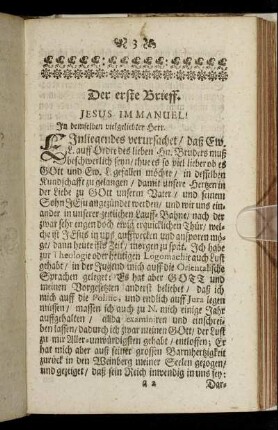 3
Der erste Brieff.
JESUS IMMANUEL!
In demselben vielgeliebter Herr.
EInliegendes verursachet / daß Ew.
L. auff Ordr des lieben Hn. Bruders muß
beschwerlich seyn / thue es so viel lieber ob es
GOtt und Ew. L. gefallen möchte / in derselben
Kundschafft zu gelangen / damit unsere Hertzen in
der Liebe zu GOtt unseren Vater / und seinem
Sohn JEsu angezündet werden / und wir uns ein-
ander in unserer geistlichen Lauff-Bahne / nach der
zwar sehr engen doch ewig erquicklichen Thür / wel-
che ist JEsus in uns auffwecken und anspornen mö-
ge / dann heute ists Zeit / morgen zu spät. Ich habe
zur Theologie oder heutigen Logomachie auch Lust
gehabt / in der Jugend mich auff die Orientalische
Sprachen geleget: Es hat aber GOTT und
meinen Vorgesetzten anderst beliebet / daß ich
mich auff die Politic, und endlich auff Jura legen
müssen / massen ich auch zu N. mich einige Jahr
auffgehalten / allda examiniren und einschrei-
ben lassen / dadurch ich zwar meinen GOtt / der Lust
zu mir Aller-unwürdigsten gehabt / entloffen; Er
hat mich aber auß seiner grossen Barmhertzigkeit
zurück in den Weinberg meiner Seelen gezogen /
und gezeiget / daß sein Reich inwendig in uns sey:
a 2
Dar-